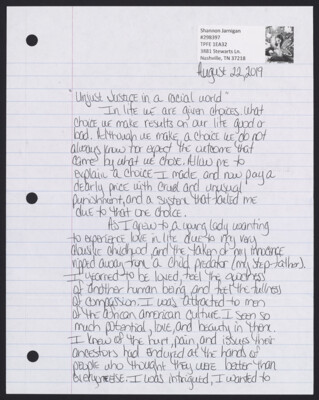 Shannon Jarnigan
#298397
TPFE 1EA32
3881 Stewarts Ln.
Nashville, TN 37218
August 22, 2019
"Unjust Justice in a racial world"
In life we are given choices. What
choice we make results on our life good or
bad. Although we make a choice we do not
always know nor expect the outcome that
came by what we chose. Allow me to
explain a choice I made, and now pay a
dearly price with cruel and unusual
punishment, and a system that failed me
due to that one choice.
As I grew to a young lady wanting
to experience love in life due to my very
abusive childhood and the taken of my innocence
ripped away from a child predator (my step-father).
I yearned to be loved, feel the goodness
of another human being and feel the fullness
of compassion. I was attracted to men
of the african american culture I seen so
much potential, love, and beauty in them.
I knew of the hurt, pain, and issues their
ancestors had endured at the hands of
people who thought they were better than
everyone else. I was intrigued, I wanted to